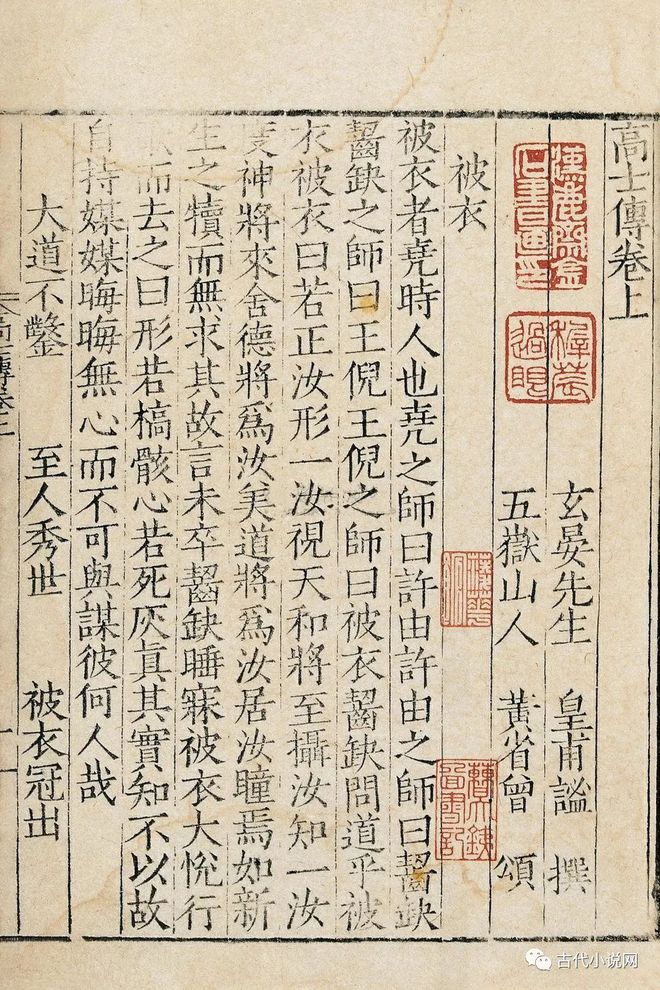 高士傳卷上
玄晏先生 皇甫謐 撰
五嶽山人 黃省曾 頌
被衣
被衣者堯時人也堯之師曰許由許由之師曰齧缺
齧缺之師曰王倪王倪之師曰被衣齧缺問道乎被
衣被衣曰若正汝形一汝視天和將至攝汝知一汝
度神將來舍德將爲汝美道將爲汝居汝瞳焉如新
生之犢而無求其故言未卒齧缺睡寐被衣大悅行
而去之曰形若槁骸心若死灰眞其實知不以故
自持媒媒晦晦無心而不可與謀彼何人哉
大道不鑿 至人秀世 被衣冠出
古代小说网